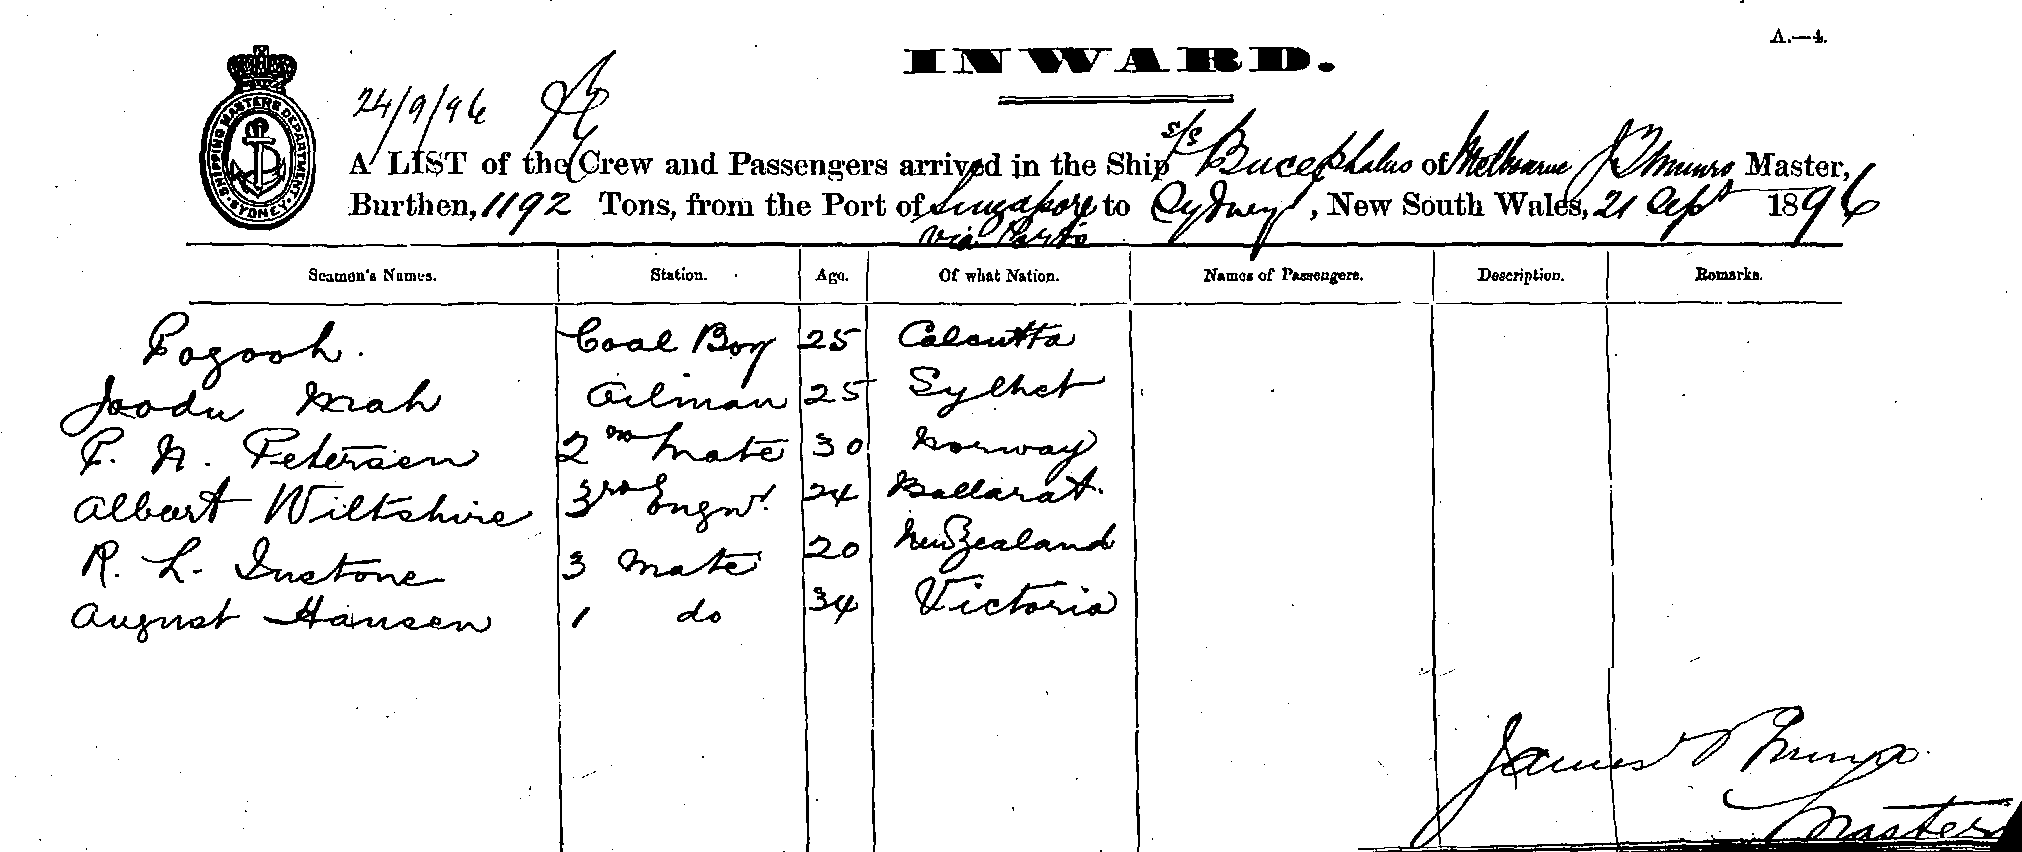 A.—4.
INWARD.
SHIPPING MASTERS DEPARTMENT. SYDNEY.
24/9/96
A LIST of the Crew and Passengers arrived in the Ship s/s Bucephalus of Melbourne J Munro Master,
Burthen, 1192 Tons, from the Port of Singapore to Sydney, New South Wales, 21 Sept 1896
via Ports
Seamen's Names. Station. Age. Of what Nation. Names of Passengers. Description. Remarks.
Fogooh. Coal Boy 25 Calcutta
Joodu Mah Oilman 25 Sylhet
P. N. Petersen 2nd Mate 30 Norway
Albert Wiltshire 3rd Engnr. 24 Ballarat.
R. L. Instone 3 Mate 20 New Zealand
August Hansen 1 do 34 Victoria
James Munro
Master